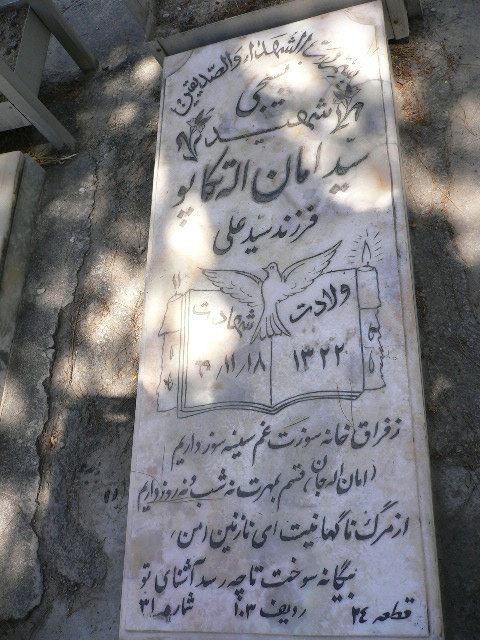 بسم رب الشهداء والصدیقین
بسیجی
شهید
سیّد امان الله تکاپو
فرزند سیّد علی
ولادت شهادت
۱۳۲۲ ۱۸ ر ۱۱ ر ۶۹
ز فراق خانه سوزت غم سینه سوز داریم
(امان الله جان) قسم بمهرت نه شب و نه روز داریم
از مرگ ناگهانیت ای نازنین امن
بیگانه سوخت تا چه رسد آشنای تو
قطعه ۲۴ ردیف ۱۰۳ شماره ۳۱